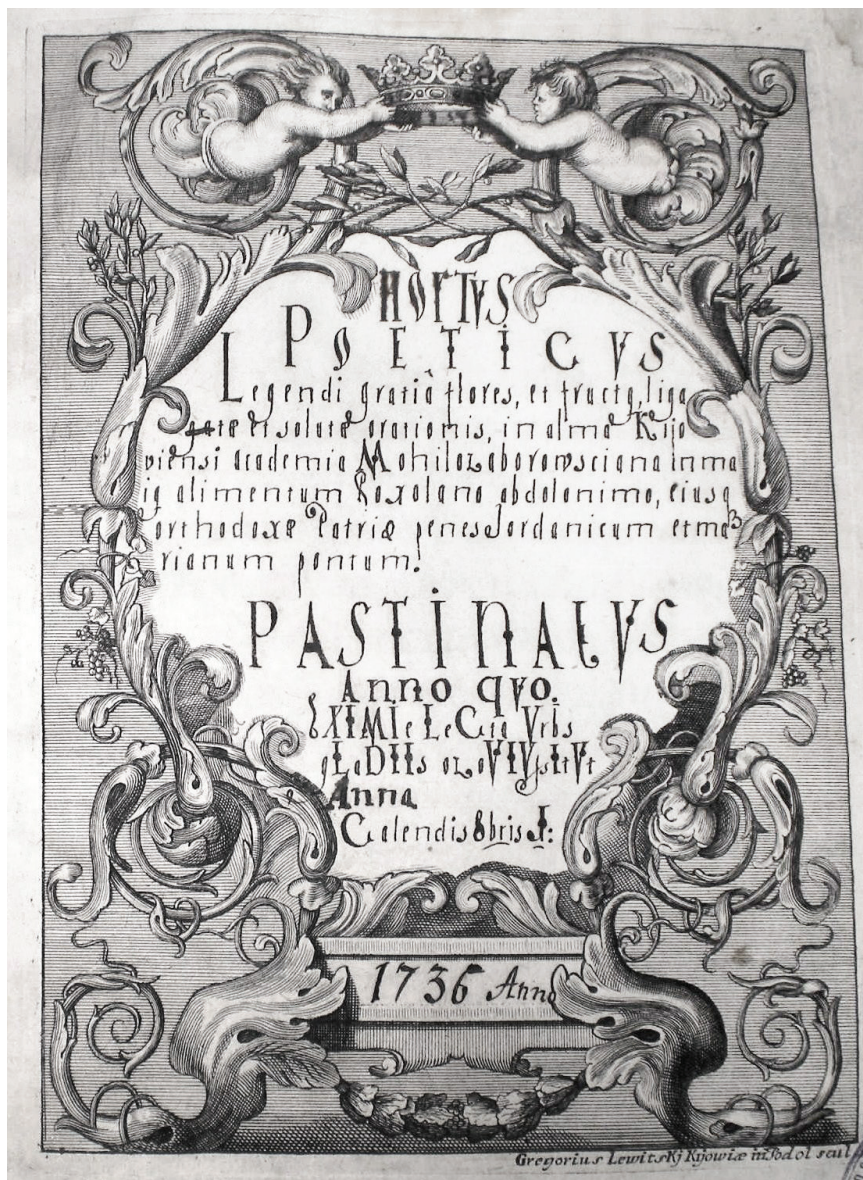 HORTVS
POETICVS
Legendi gratiâ flores, et fructq, liga
gatæ et solutæ orationis, in alma Kijo
viensi academia Mohilozaborowsciana in ma
iq alimentum Roxolano abdolonimo, eiusq
orthodoxæ Patriæ penes Jordanicum et ma
rianum pontum.
PASTINATVS
Anno qvo.
Vrbs
Anna
Calendis 8bris I:
1736 Anno
Gregorius Lewitskj Kijowiæ in Podol sculp